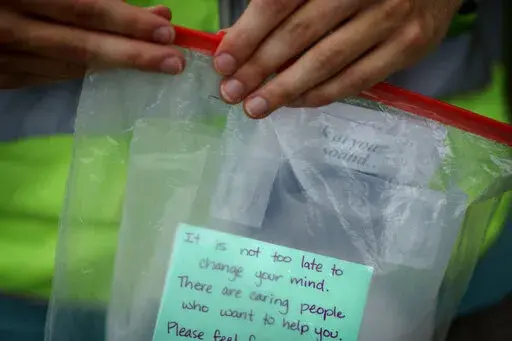 you
sound.
It is not too late to
change your mind.
There are caring people
who want to help you.
Please feel